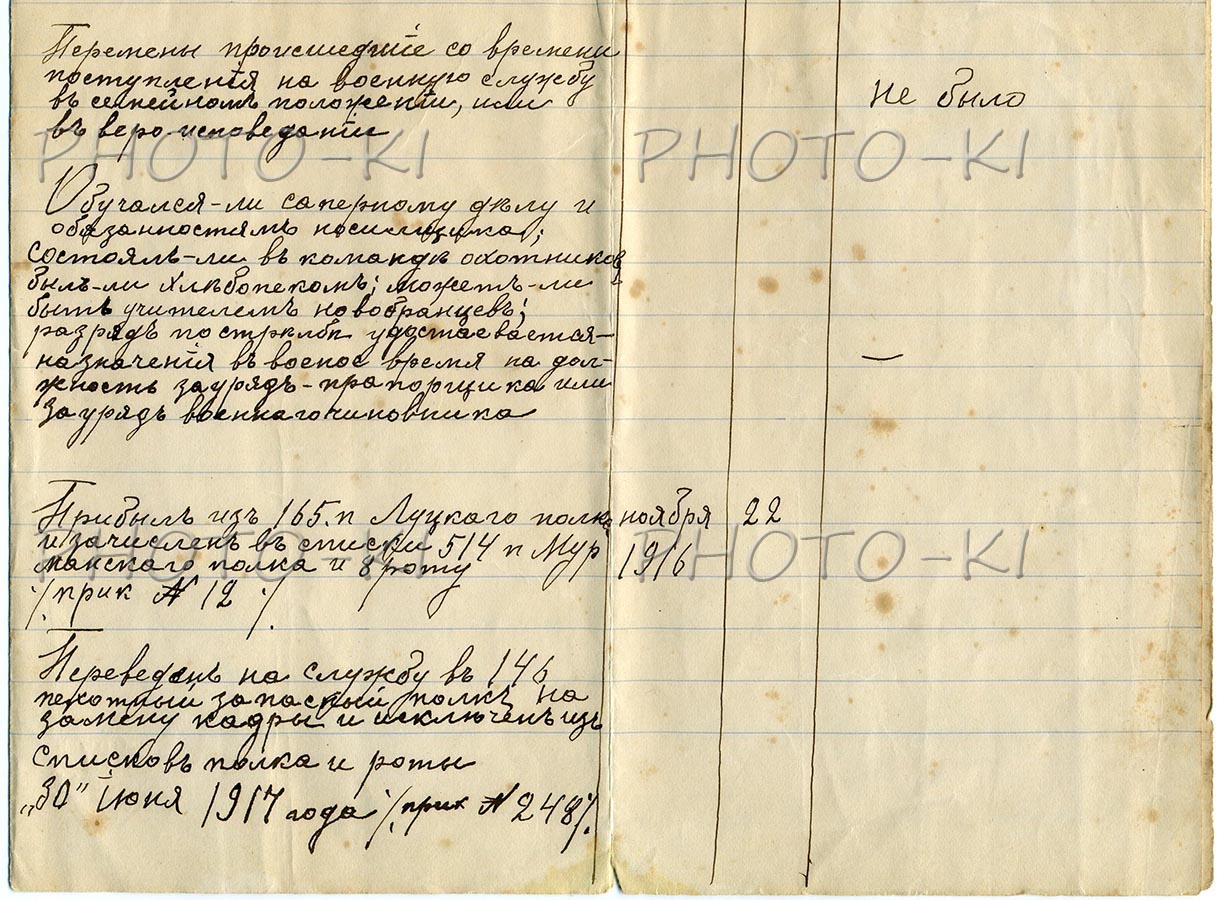 Перемены происшедшіе со времени
поступленія на военную службу
въ семейномъ положеніи, или
въ вероисповеданіи
не было
PHOTO-KI PHOTO-KI
Обучался-ли саперному дѣлу и
обязанностямъ носильщика;
состоялъ-ли въ командѣ охотниковъ
былъ-ли хлѣбопекомъ; можетъ-ли
быть учителемъ новобранцевъ;
разрядъ по стрѣлбѣ удостаевается-
назначенія въ военое время на дол-
жность зауряд-прапорщика или
заурядъ военнаго чиновника
—
Прибылъ изъ 165. п Луцкаго полка ноября 22
и зачисленъ въ списки 514 п Мур 1916
манскаго полка и 8 роту
PHOTO-KI PHOTO-KI
/. прик № 12 /.
Переведенъ на службу въ 146
пехотный запасный полкъ на
замену кадры и исключенъ изъ
списковъ полка и роты
„30" Іюня 1917 года /. прик № 248 /.